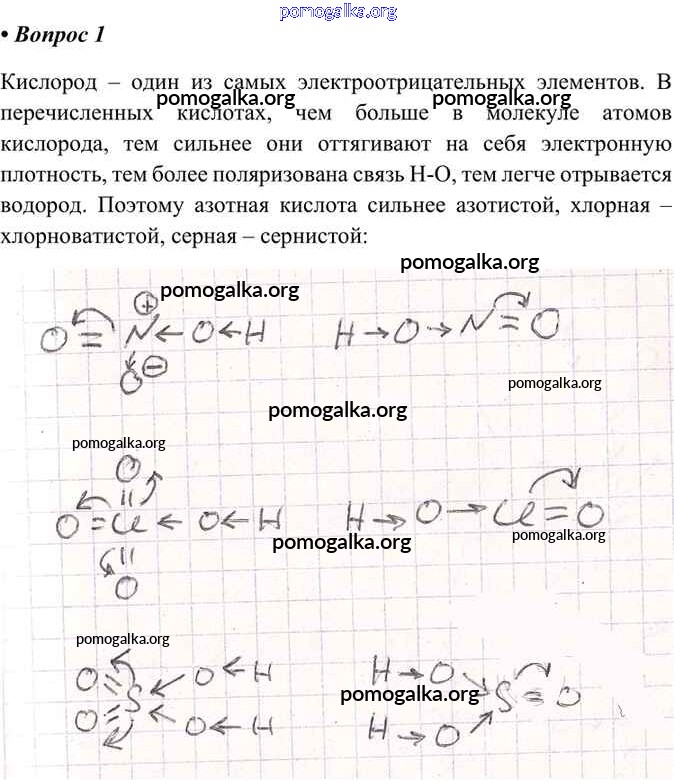 pomogalka.org
• Вопрос 1
Кислород – один из самых электроотрицательных элементов. В
pomogalka.org pomogalka.org
перечисленных кислотах, чем больше в молекуле атомов
кислорода, тем сильнее они оттягивают на себя электронную
плотность, тем более поляризована связь Н-О, тем легче отрывается
водород. Поэтому азотная кислота сильнее азотистой, хлорная –
хлорноватистой, серная – сернистой:
pomogalka.org
pomogalka.org
⊕
O = N ← O ← H H → O → N = O
↓ ⊖
O
pomogalka.org
pomogalka.org
pomogalka.org
O
||
O = Cl ← O ← H H → O → Cl = O
pomogalka.org
pomogalka.org
||
O
pomogalka.org
O = S ← O ← H H → O → S = O
pomogalka.org
O = ← O ← H H → O